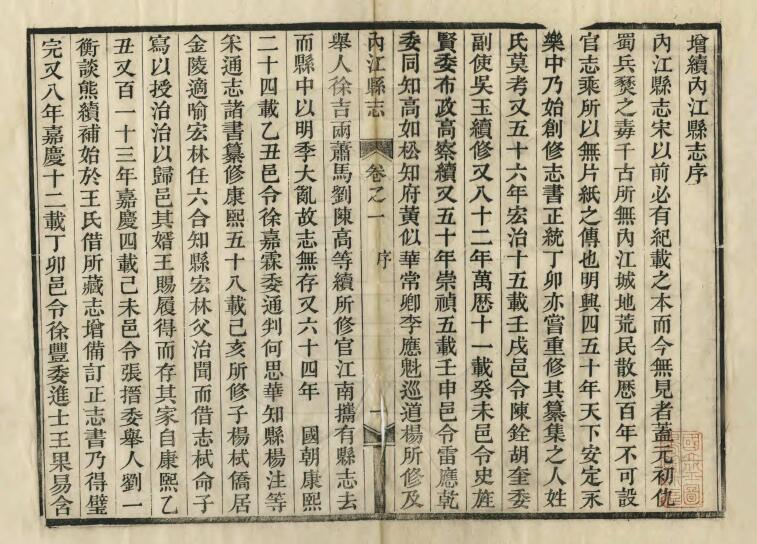 增續內江縣志序
內江縣志宋以前必有紀載之本而今無見者蓋元初仇
蜀兵燹之毒千古所無內江城地荒民散厯百年不可設
官志乘所以無片紙之傳也明興四五十年天下安定永
樂中乃始創修志書正統丁卯亦嘗重修其纂集之人姓
氏莫考又五十六年宏治十五載壬戌邑令陳銓胡奎委
副使吳玉續修又八十二年萬厯十一載癸未邑令史旌
賢委布政高察續又五十年崇禎五載壬申邑令雷應乾
委同知高如松知府黃似華常卿李應魁巡道楊所修及
內江縣志 卷之一 序 一
舉人徐吉兩蕭馬劉陳高等續所修官江南攜有縣志去
而縣中以明季大亂故志無存又六十四年 國朝康熙
二十四載乙丑邑令徐嘉霖委通判何思華知縣楊注等
采通志諸書纂修康熙五十八載己亥所修子楊栻僑居
金陵適喻宏林任六合知縣宏林父治聞而借志栻命子
寫以授治治以歸邑其婿王賜履得而存其家自康熙乙
丑又百一十三年嘉慶四載己未邑令張搢委舉人劉一
衡談熊續補始於王氏借所藏志增備訂正志書乃得璧
完又八年嘉慶十二載丁卯邑令徐豐委進士王果易含